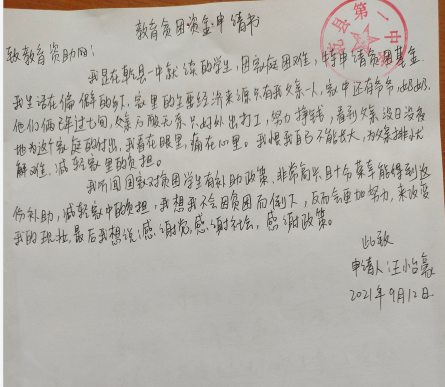 教育贫困资金申请书
县第一中
致教育资助网:
我是在乾县一中就读的学生,因家庭困难,特申请贫困基金.
我生活在偏僻的乡下,家里的主要经济来源只有我父亲一人,家中还有爷爷,奶奶.
他们俩已年过七旬,父亲万般无奈只好外出打工,努力挣钱,看到父亲没日没夜
地为这个家庭的付出,我看在眼里,痛在心里。我恨我自己不能长大,为父亲排忧
解难、减轻家里的负担。
我听闻国家对贫困学生有补助政策、非常高兴且十分荣幸能得到这
份补助,减轻家中的负担,我想我不会因贫困而倒下,反而会更加努力,来改变
我的现状,最后我想说:感谢党,感谢社会,感谢政策。
此致
申请人:王怡豪
2021年9月12日